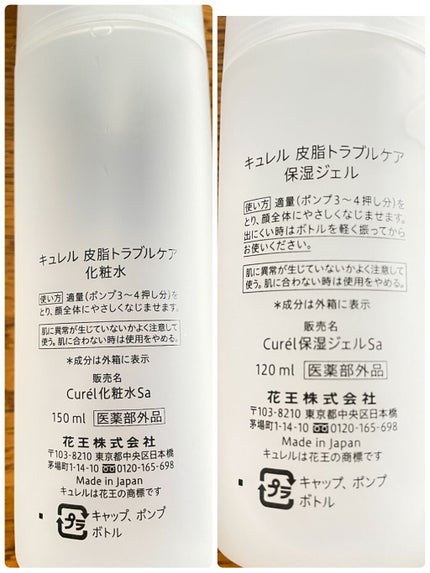 キュレル 皮脂トラブルケア
化粧水
使い方 適量(ポンプ3〜4押し分)を
とり、顔全体にやさしくなじませます。
肌に異常が生じていないかよく注意して
使う。肌に合わない時は使用をやめる。
*成分は外箱に表示
販売名
Curél化粧水Sa
150 ml 医薬部外品
花王株式会社
〒103-8210 東京都中央区日本橋
茅場町1-14-10 0120-165-698
Made in Japan
キュレルは花王の商標です
プラ キャップ、ポンプ
ボトル
キュレル 皮脂トラブルケア
保湿ジェル
使い方 適量(ポンプ3〜4押し分)を
とり、顔全体にやさしくなじませます。
出にくい時はボトルを軽く振ってから
お使いください。
肌に異常が生じていないかよく注意して
使う。肌に合わない時は使用をやめる。
*成分は外箱に表示
販売名
Curél保湿ジェルSa
120 ml 医薬部外品
花王株式会社
〒103-8210 東京都中央区日本橋
茅場町1-14-10 0120-165-698
Made in Japan
キュレルは花王の商標です
プラ キャップ、ポンプ
ボトル